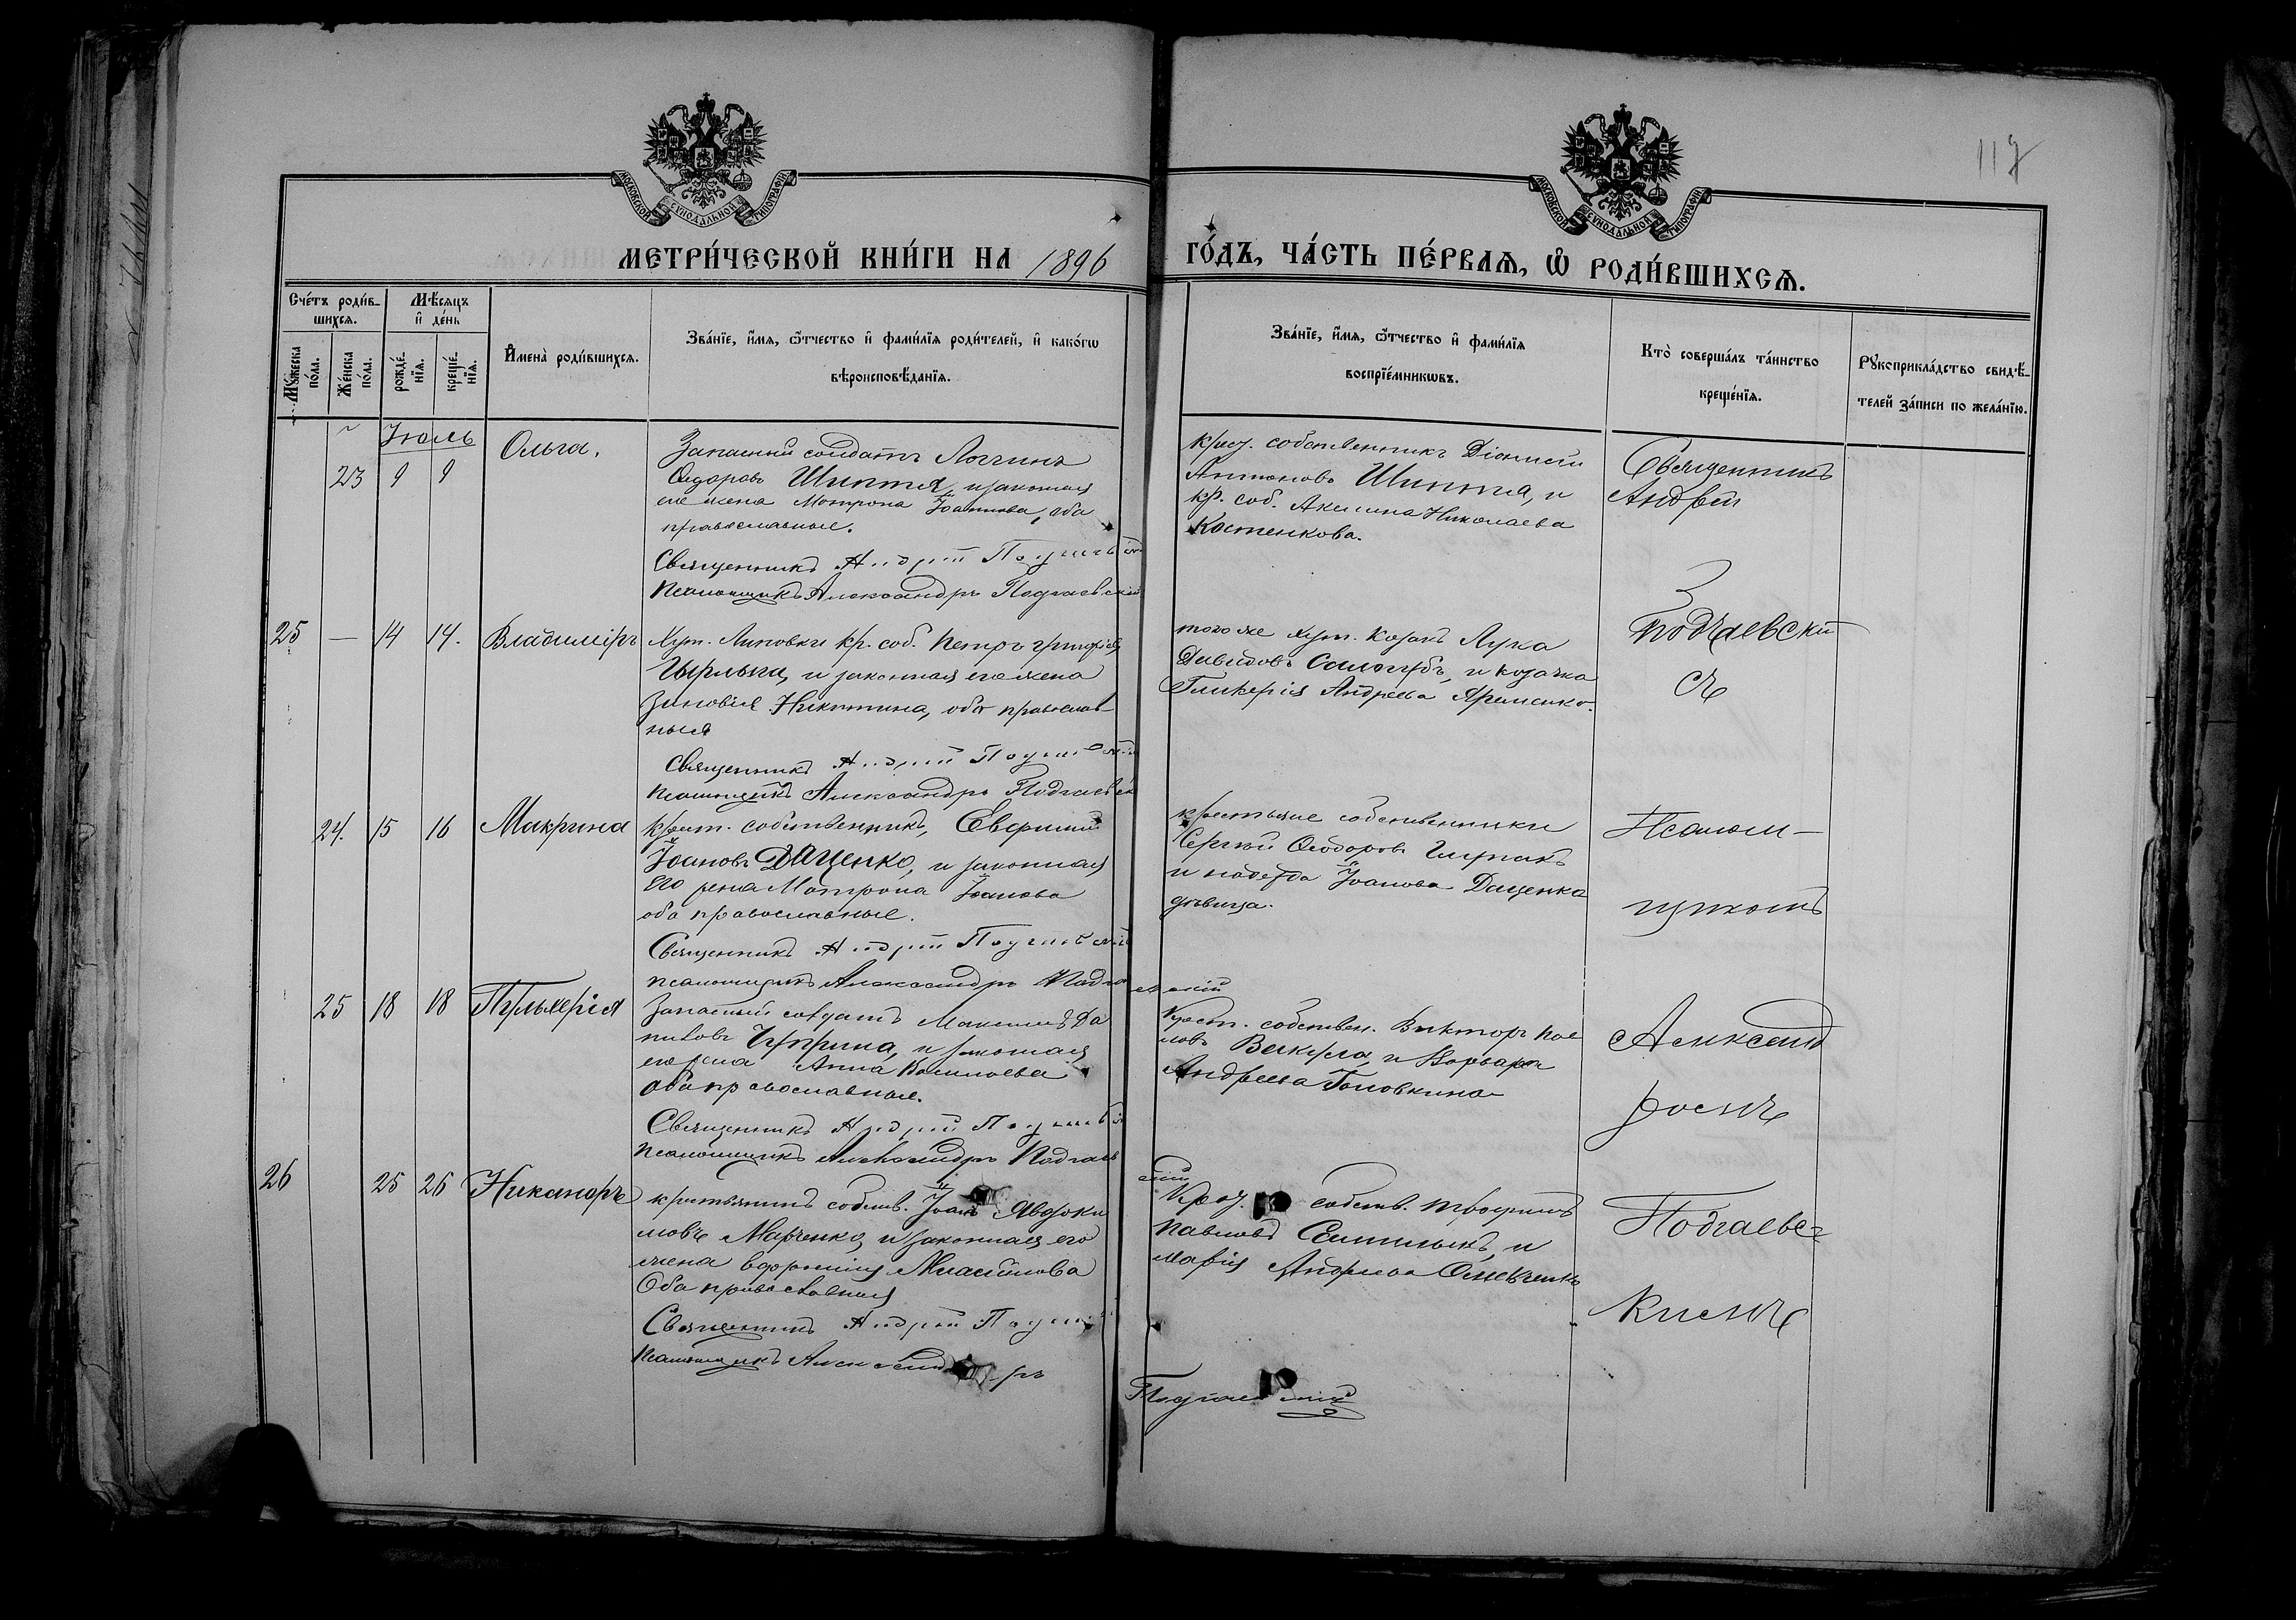 117
МОСКОВСКОЙ СУНОДАЛЬНОЙ ТИПОГРАФІИ
МОСКОВСКОЙ СУНОДАЛЬНОЙ ТИПОГРАФІИ
МЕТРИ́ЧЕСКОЙ КНИ́ГИ НА 1896 ГО́ДЪ, ЧА́СТЬ ПЕ́РВАѦ, Ѡ҆ РОДИ́ВШИХСѦ.
Сче́тъ роди́в-
шихсѧ.
Мꙋ́жеска
по́ла.
Же́нска
по́ла.
Мѣ́сѧцъ
и҆ де́нь
рожде́-
нїѧ.
креще́-
нїѧ.
И҆мена̀ роди́вшихсѧ.
Зва́нїе, и҆́мѧ, ѻ҆́тчество и҆ фами́лїѧ роди́телей, и҆ како́гѡ
вѣроисповѣ́данїѧ.
Зва́нїе, и҆́мѧ, ѻ҆́тчество и҆ фами́лїѧ
воспрїе́мникѡвъ.
Кто̀ соверша́лъ та́инство
креще́нїѧ.
Рꙋкоприкла́дство свидѣ́-
телей за́писи по жела́нїю.
Іюль
23 9 9 Ольга.
Запасный солдатъ Логгинъ
Сидоровъ Шипта, и законная
его жена Мотрона Іоаннова, оба
православные.
Священникъ Андрей
Псаломщикъ Александръ Подгаевскій
крест. собственникъ Діонисій
Антоновъ Шипта, и
кр. соб. Акилина Николаева
Костенкова.
Священникъ
Андрей
Подгаевскій
съ
25 — 14 14. Владиміръ
Хут. Липовки кр. соб. Петръ Григорьевъ
и законная его жена
Зиновія Никитина, оба православ-
ные
Священникъ Андрей
Псаломщикъ Александръ Подгаевскій
того же хут. козакъ Лука
Давидовъ Сологубъ, и козачка
Гликерія Андреева Яременко.
24. 15 16 Макрина
крест. собственникъ, Евфимій
Іоановъ ДАЦенко, и законная
его жена Мотрона Іоанова
оба православные.
Священникъ Андрей
псаломщикъ Александръ Подгаевскій
крестьяне собственники
Сергій Ѳеодоровъ
и надежда Іоанова Даценко
дѣвица.
Псалом-
щикомъ
25 18 18 Пульхерія
Запасный солдатъ Максимъ Да
ниловъ Чуприна, и законная
его жена Анна Василиева
оба православные.
Священникъ Андрей
Псаломщикъ Александръ Подгаевскій
Крест. собствен. Викторъ Пав
ловъ Вакула, и Варвара
Андреева Головкина
Александ
ромъ
26 25 26 Никаноръ
крестьянинъ собств. Іоанъ Явдоки
мовъ Марченко, и законная его
жена Мисайлова
Оба православные
Священникъ Андрей
Псаломщикъ Александръ
Подгаевскій
Крест. собств. Трофимъ
Павловъ и
Марія Андреева
Подгаевс-
кимъ